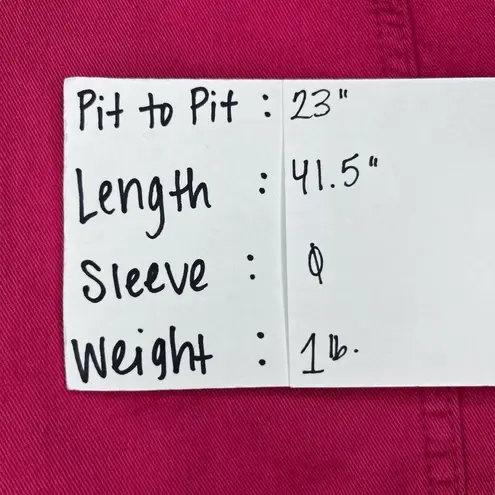 Pit to Pit : 23"
Length : 41.5"
Sleeve : Ø
Weight : 1 lb.